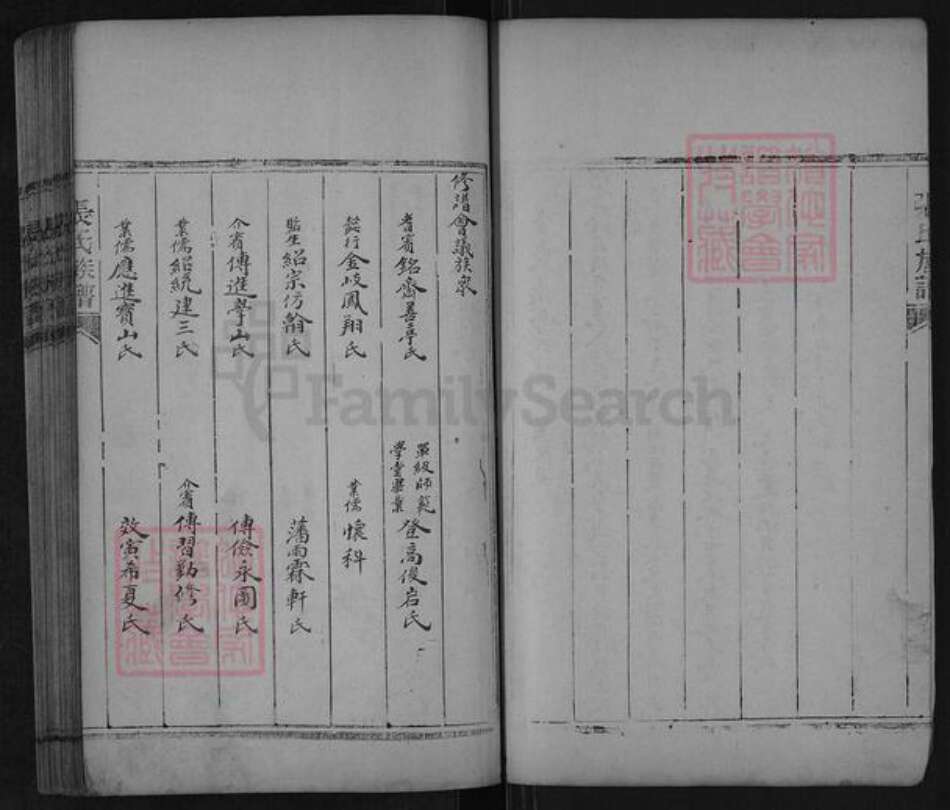 修譜會議族衆
耆賓銘齋善亭氏
單級師範學堂畢業登高俊岩氏
懿行金岐鳳翔氏
業儒懷科
監生紹宗仿翰氏
藩雨霖軒氏
介賓傳進學山氏
傳儉永圖氏
業儒紹統建三氏
介賓傳習勤修氏
業儒應進賓山氏
效寅希夏氏
張氏族譜
FamilySearch